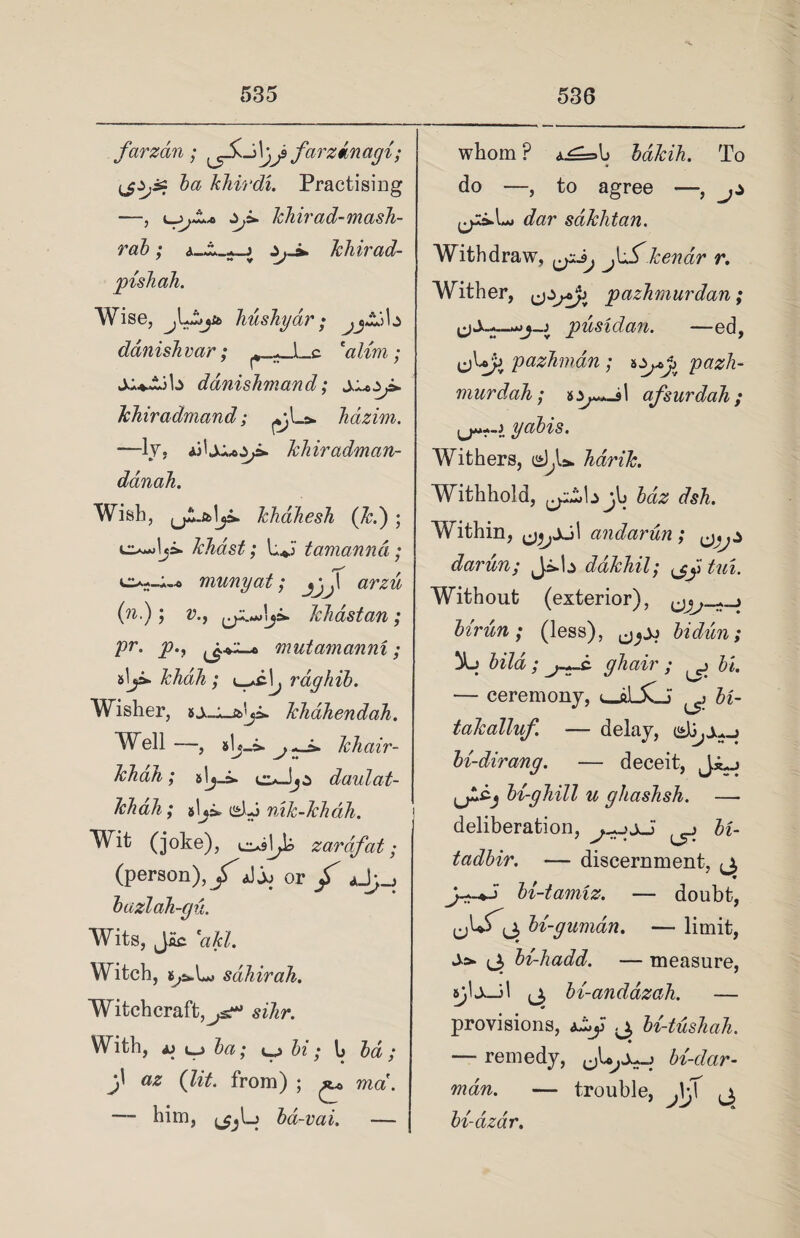 535
536
farzán ; فرزانگی farzánagí;
بخردی ba khirdí. Practising
—, خرد مشرب khirad-mash-
rab ; خرد پیشه khirad-
píshah.
Wise, هوشیار húshyár ; دانشور
dánishvar ; علیم 'alím ;
دانشمند dánishmand ; خردمند
khiradmand ; حازم házim.
—ly, خردمندانه khiradman-
dánah.
Wish, خواهش kháhesh (k.) ;
خواست khást ; تمنا tamanná ;
منیت munyat ; آرزو arzú
(n.) ; v., خواستن khástan ;
pr. p., متمنی mutamanní ;
خواه kháh ; راغب rághib.
Wisher, خواهنده kháhendah.
Well —, خیر خواه khair-
kháh ; دولت خواه daulat-
kháh ; نیك خواه ník-kháh.
Wit (joke), ظرافت zaráfat ;
(person), بذله گو or بزله گو
bazlah-gú.
Wits, عقل 'akl.
Witch, ساحره sáhirah.
Witchcraft, سحر sihr.
With, به ب ba ; ب bi ; با bá ;
از az (lit. from) ; مع ma'.
— him, باوی bá-vai. —
whom ? باکه bákih. To
do —, to agree —, در
ساختن dar sákhtan.
Withdraw, کنار رفتن kenár r.
Wither, پژمردن pazhmurdan ;
پوسیدن púsídan. —ed,
پژمان pazhmán ; پژمرده pazh-
murdah ; افسرده afsurdah ;
یبس yabis.
Withers, حارك hárik.
Withhold, باز داشتن báz dsh.
Within, اندرون andarún ; درون
darún ; داخل dákhil ; توی tui.
Without (exterior), بیرون
bírún ; (less), بدون bidún ;
بلا bilá ; غیر ghair ; بی bí.
— ceremony, بی تکلف bí-
takalluf. — delay, بیدرنگ
bí-dirang. — deceit, بیغل
وغش bí-ghill u ghashsh. —
deliberation, بی تدبیر bí-
tadbír. — discernment, بی
تمیز bí-tamíz. — doubt,
بی گمان bí-gumán. — limit,
بی حد bí-hadd. — measure,
بی اندازه bí-andázah. —
provisions, بی توشه bí-túshah.
— remedy, بیدرمان bí-dar-
mán. — trouble, بی آزار
bí-ázár.